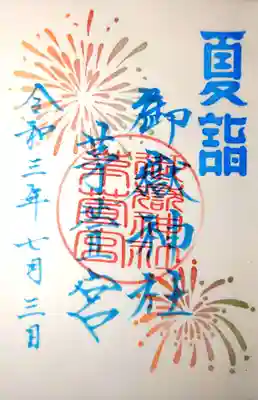 夏詣
御嶽神社
茅萱宮
令和三年七月三日